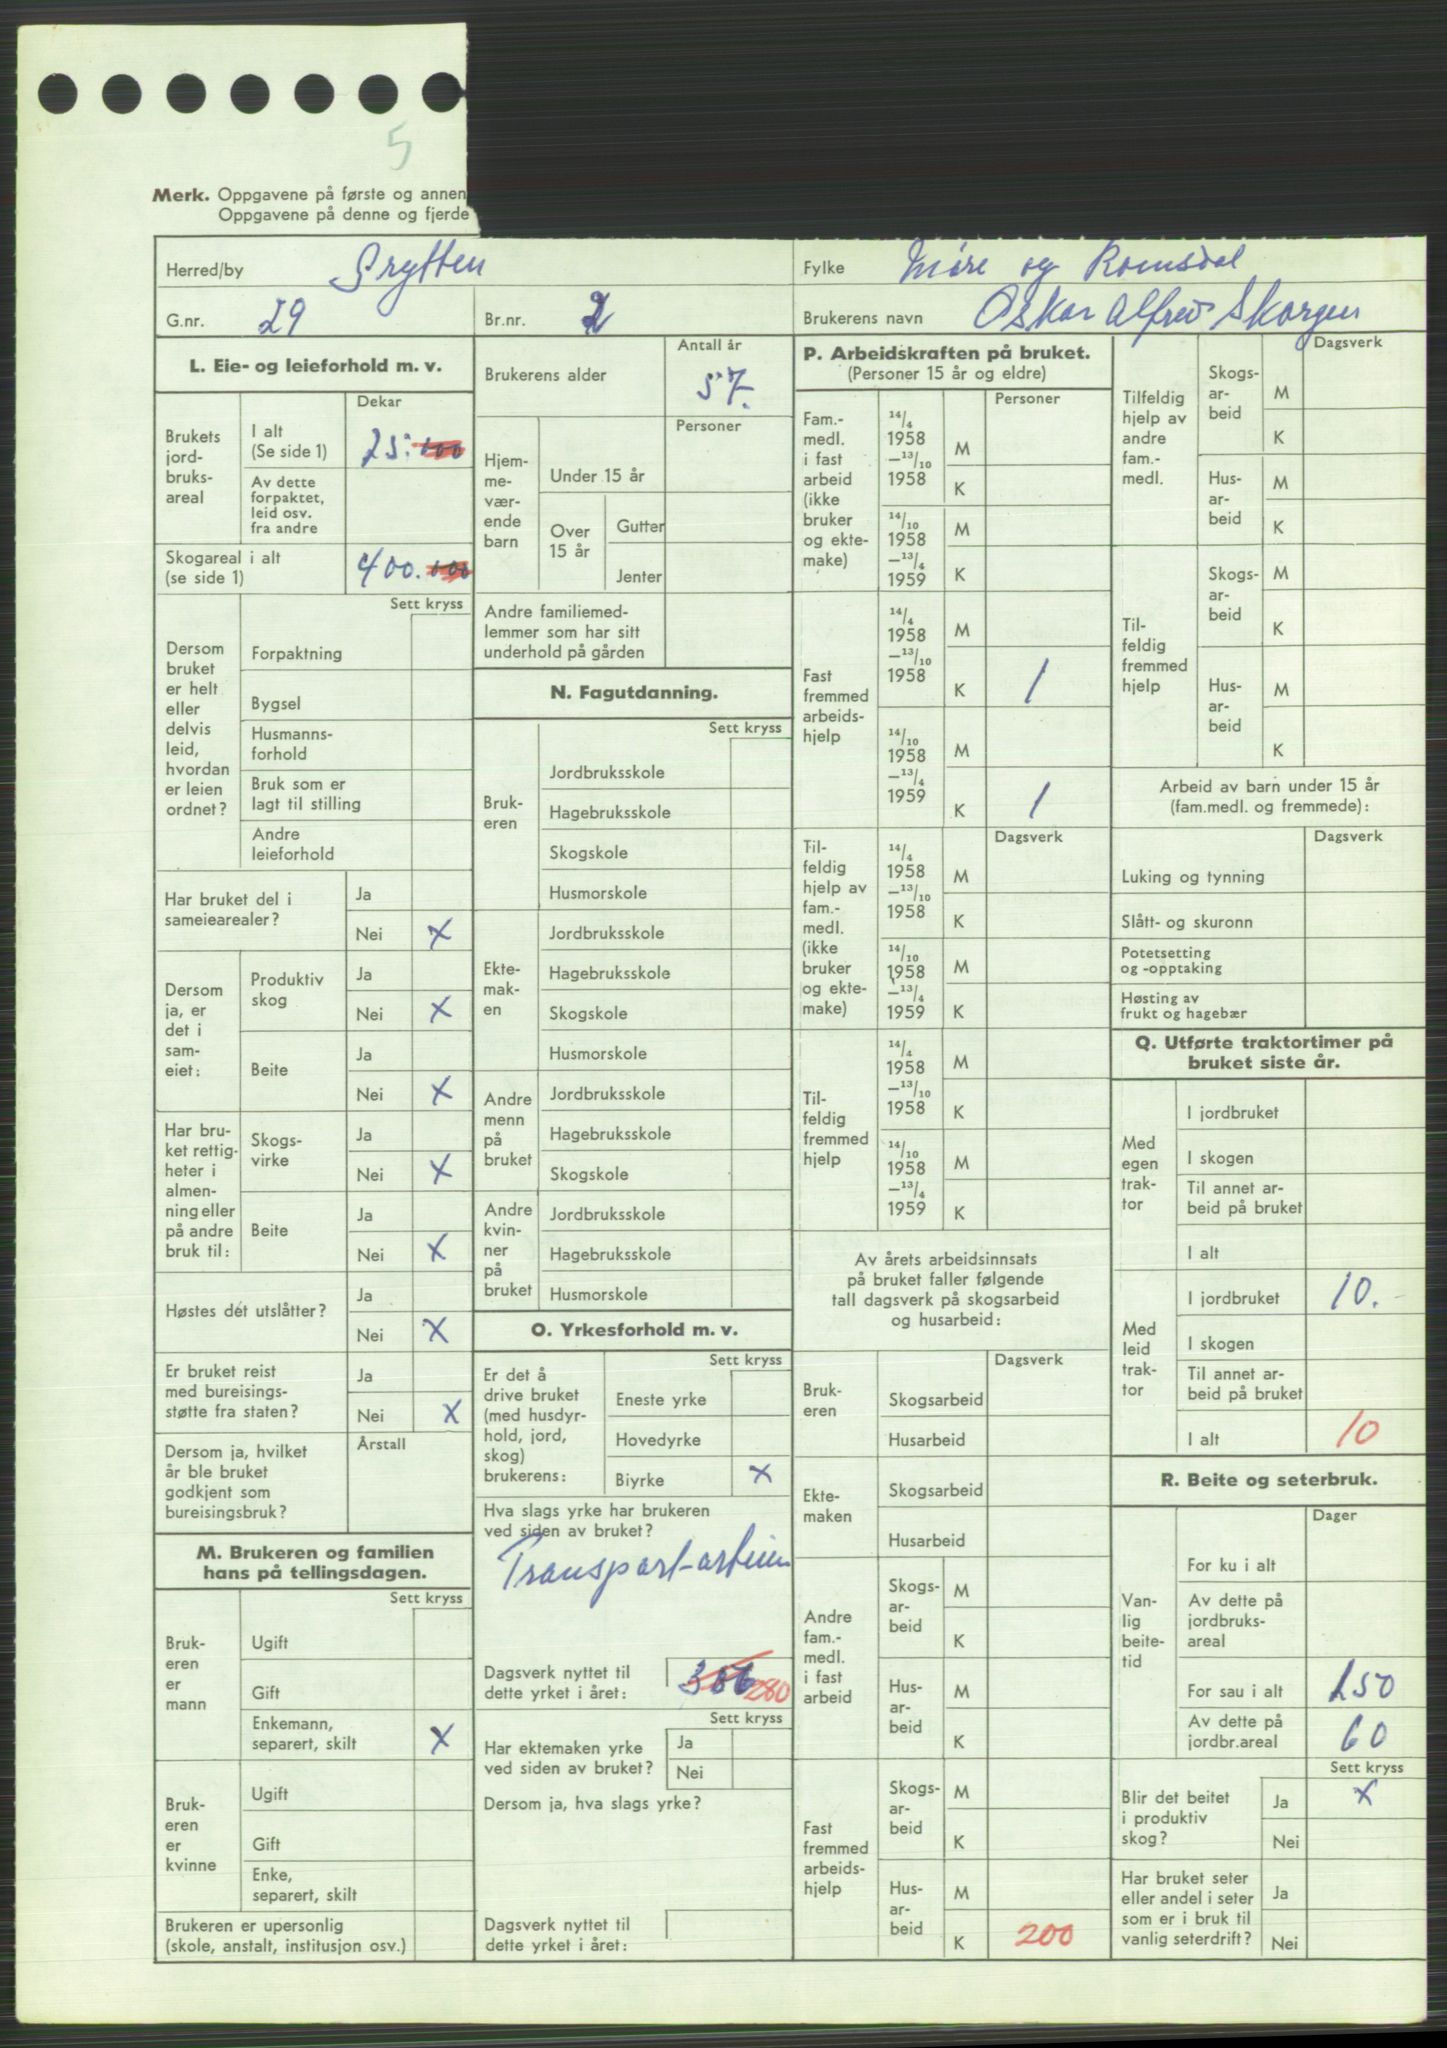 5
Merk. Oppgavene på første og annen
Oppgavene på denne og fjerde
Herred/by Grytten
Fylke Møre og Romsdal
G.nr. 29
Br.nr. 2
Brukerens navn Oskar Alfred Skorgen
L. Eie- og leieforhold m. v.
Dekar
Brukets jord-bruks-areal
I alt (Se side 1) 25.000
Av dette forpaktet, leid osv. fra andre
Skogareal i alt (se side 1) 400.000
Sett kryss
Dersom bruket er helt eller delvis leid, hvordan er leien ordnet?
Forpaktning
Bygsel
Husmanns-forhold
Bruk som er lagt til stilling
Andre leieforhold
Har bruket del i sameiearealer?
Ja
Nei X
Dersom ja, er det i sam-eiet:
Produktiv skog
Ja
Nei X
Beite
Ja
Nei X
Har bru-ket rettig-heter i almen-ning eller på andre bruk til:
Skogs-virke
Ja
Nei X
Beite
Ja
Nei X
Høstes det utslåtter?
Ja
Nei X
Er bruket reist med bureisings-støtte fra staten?
Ja
Nei X
Dersom ja, hvilket år ble bruket godkjent som bureisingsbruk?
Årstall
M. Brukeren og familien hans på tellingsdagen.
Sett kryss
Bruk-eren er mann
Ugift
Gift
Enkemann, separert, skilt X
Bruk-eren er kvinne
Ugift
Gift
Enke, separert, skilt
Brukeren er upersonlig (skole, anstalt, institusjon osv.)
Antall år
Brukerens alder 57.
Personer
Hjem-me-vær-ende barn
Under 15 år
Over 15 år
Gutter
Jenter
Andre familiemed-lemmer som har sitt underhold på gården
N. Fagutdanning.
Sett kryss
Bruk-eren
Jordbruksskole
Hagebruksskole
Skogskole
Husmorskole
Ekte-mak-en
Jordbruksskole
Hagebruksskole
Skogskole
Husmorskole
Andre menn på bruket
Jordbruksskole
Hagebruksskole
Skogskole
Andre kvin-ner på bruket
Jordbruksskole
Hagebruksskole
Husmorskole
O. Yrkesforhold m. v.
Sett kryss
Er det å drive bruket (med husdyr-hold, jord, skog) brukerens:
Eneste yrke
Hovedyrke
Biyrke X
Hva slags yrke har brukeren ved siden av bruket?
Transport-arbeider
Dagsverk nyttet til dette yrket i året: 306 280
Sett kryss
Har ektemaken yrke ved siden av bruket?
Ja
Nei
Dersom ja, hva slags yrke?
Dagsverk nyttet til dette yrket i året:
P. Arbeidskraften på bruket.
(Personer 15 år og eldre)
Personer
Fam.-medl. i fast arbeid (ikke bruker og ekte-make)
14/4 1958 –13/10 1958
M
K
14/10 1958 –13/4 1959
M
K
Fast fremmed arbeids-hjelp
14/4 1958 –13/10 1958
M
K 1
14/10 1958 –13/4 1959
M
K 1
Dagsverk
Til-feldig hjelp av fam.-medl. (ikke bruker og ekte-make)
14/4 1958 –13/10 1958
M
K
14/10 1958 –13/4 1959
M
K
Til-feldig fremmed hjelp
14/4 1958 –13/10 1958
M
K
14/10 1958 –13/4 1959
M
K
Av årets arbeidsinnsats på bruket faller følgende tall dagsverk på skogsarbeid og husarbeid:
Dagsverk
Bruk-eren
Skogsarbeid
Husarbeid
Ekte-maken
Skogsarbeid
Husarbeid
Andre fam.-medl. i fast arbeid
Skogs-ar-beid
M
K
Hus-ar-beid
M
K
Fast fremmed arbeids-hjelp
Skogs-ar-beid
M
K
Hus-ar-beid
M
K 200
Dagsverk
Tilfeldig hjelp av andre fam.-medl.
Skogs-ar-beid
M
K
Hus-ar-beid
M
K
Til-feldig fremmed hjelp
Skogs-ar-beid
M
K
Hus-ar-beid
M
K
Arbeid av barn under 15 år (fam.medl. og fremmede):
Dagsverk
Luking og tynning
Slått- og skuronn
Potetsetting og -opptaking
Høsting av frukt og hagebær
Q. Utførte traktortimer på bruket siste år.
Med egen trak-tor
I jordbruket
I skogen
Til annet ar-beid på bruket
I alt
Med leid trak-tor
I jordbruket 10.-
I skogen
Til annet ar-beid på bruket
I alt 10
R. Beite og seterbruk.
Dager
Van-lig beite-tid
For ku i alt
Av dette på jordbruks-areal
For sau i alt 150
Av dette på jordbr.areal 60
Sett kryss
Blir det beitet i produktiv skog?
Ja X
Nei
Har bruket seter eller andel i seter som er i bruk til vanlig seterdrift?
Ja
Nei